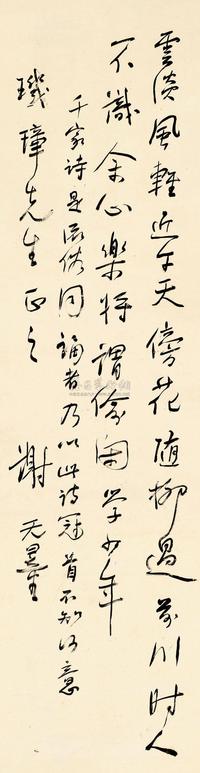 雲淡風輕近午天傍花随柳過前川時人
不識余心樂將謂偷閑学少年
千家詩是流俗同誦者乃以此詩冠首不知何意
璣璋先生正之
謝无量